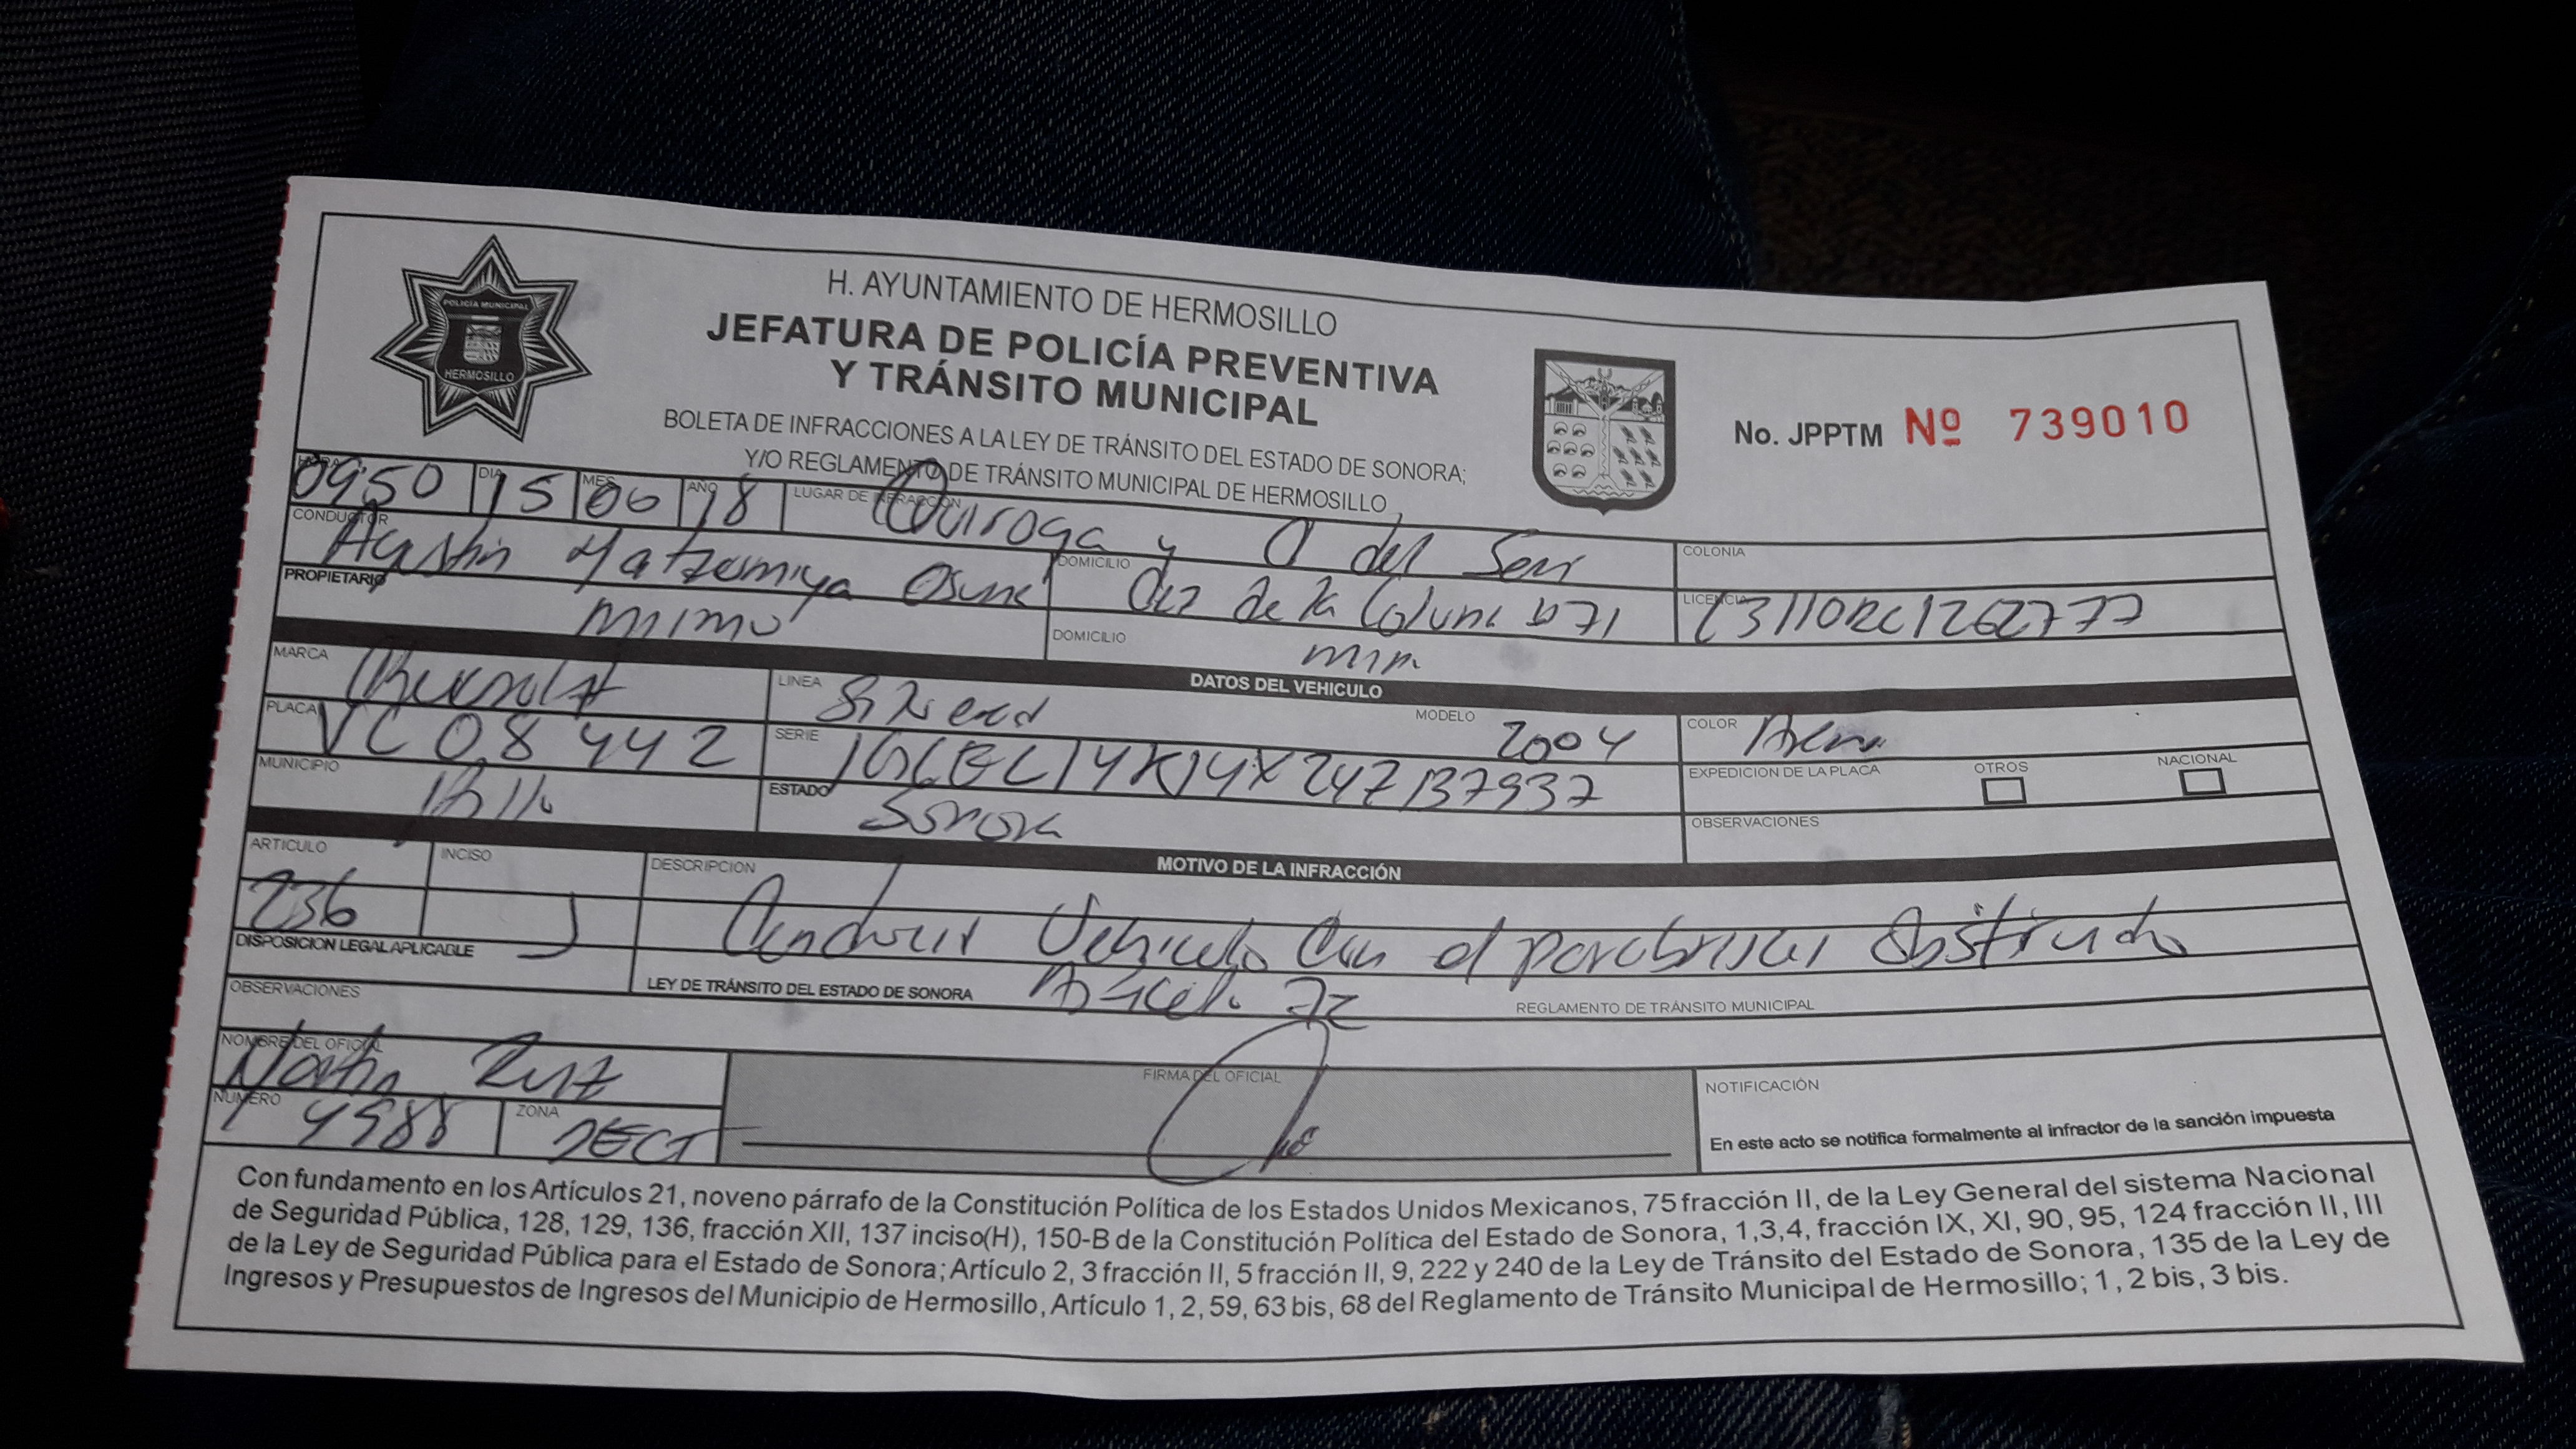 H. AYUNTAMIENTO DE HERMOSILLO
POLICÍA MUNICIPAL
HERMOSILLO
JEFATURA DE POLICÍA PREVENTIVA
Y TRÁNSITO MUNICIPAL
BOLETA DE INFRACCIONES A LA LEY DE TRÁNSITO DEL ESTADO DE SONORA;
Y/O REGLAMENTO DE TRÁNSITO MUNICIPAL DE HERMOSILLO
No. JPPTM Nº 739010
HORA 0950 DIA 15 MES 06 AÑO 18 LUGAR DE INFRACCIÓN Quiroga y del Seri COLONIA
CONDUCTOR Agustin Matzumiya Osuna DOMICILIO de la Coluna 71 LICENCIA
PROPIETARIO mismo DOMICILIO mim
DATOS DEL VEHICULO
MARCA Chevrolet LINEA Silverad MODELO 2004 COLOR
PLACA VC08442 SERIE EXPEDICION DE LA PLACA OTROS NACIONAL
MUNICIPIO Hillo ESTADO Sonora OBSERVACIONES
MOTIVO DE LA INFRACCIÓN
ARTICULO INCISO DESCRIPCION
236 J Conducir Vehiculo Con el parabrisas Obstruido
DISPOSICION LEGAL APLICABLE LEY DE TRÁNSITO DEL ESTADO DE SONORA REGLAMENTO DE TRÁNSITO MUNICIPAL
OBSERVACIONES
NOMBRE DEL OFICIAL Martin Ruiz
FIRMA DEL OFICIAL
NOTIFICACIÓN
NUMERO 4988 ZONA
En este acto se notifica formalmente al infractor de la sanción impuesta
Con fundamento en los Artículos 21, noveno párrafo de la Constitución Política de los Estados Unidos Mexicanos, 75 fracción II, de la Ley General del sistema Nacional
de Seguridad Pública, 128, 129, 136, fracción XII, 137 inciso(H), 150-B de la Constitución Política del Estado de Sonora, 1,3,4, fracción IX, XI, 90, 95, 124 fracción II, III
de la Ley de Seguridad Pública para el Estado de Sonora; Artículo 2, 3 fracción II, 5 fracción II, 9, 222 y 240 de la Ley de Tránsito del Estado de Sonora, 135 de la Ley de
Ingresos y Presupuestos de Ingresos del Municipio de Hermosillo, Artículo 1, 2, 59, 63 bis, 68 del Reglamento de Tránsito Municipal de Hermosillo; 1, 2 bis, 3 bis.